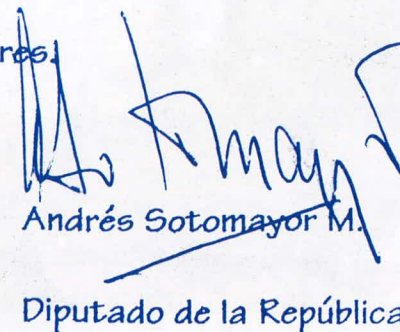 res.
Andrés Sotomayor M.
Diputado de la República